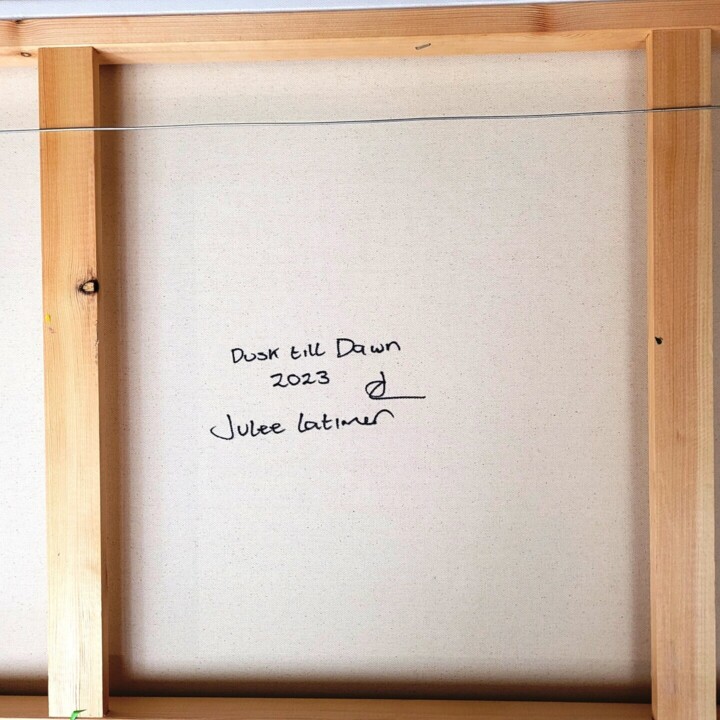 Dusk till Dawn
2023
Julee Latimer